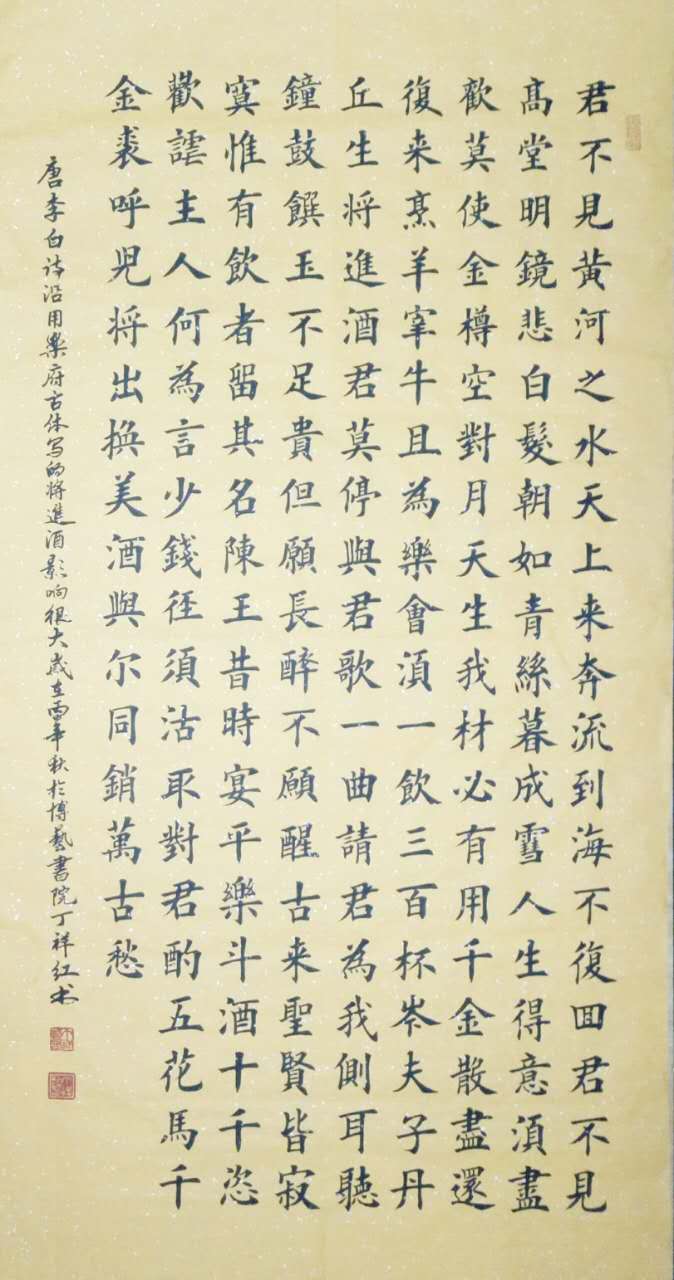 君不見黃河之水天上来奔流到海不復囬君不見
髙堂明鏡悲白髮朝如青絲暮成雪人生得意須盡
歡莫使金樽空對月天生我材必有用千金散盡還
復来烹羊宰牛且為樂會須一飲三百杯岑夫子丹
丘生將進酒君莫停與君歌一曲請君為我側耳聽
鐘鼓饌玉不足貴但願長醉不願醒古来聖賢皆寂
寞惟有飲者留其名陳王昔時宴平樂斗酒十千恣
歡謔主人何為言少錢徑須沽取對君酌五花馬千
金裘呼兒將出換美酒與尔同銷萬古愁
唐李白诗沿用樂府古体写的將進酒影响很大歲在秋於博藝書院丁祥红书